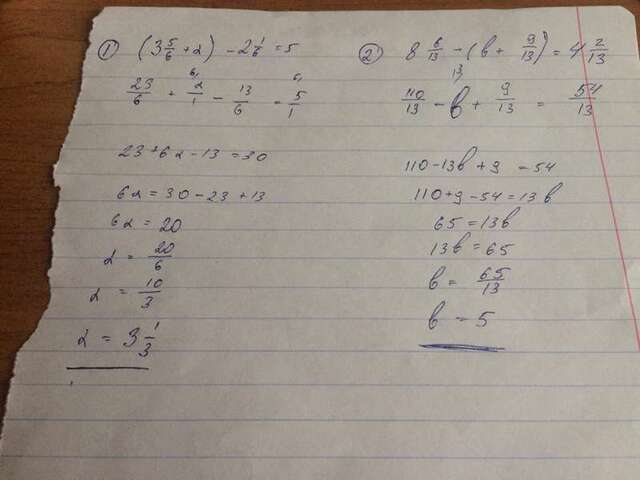 ① (3 5/6 + α) - 2 1/6 = 5
23/6 + α/1 - 13/6 = 5/1
23 + 6α - 13 = 30
6α = 30 - 23 + 13
6α = 20
α = 20/6
α = 10/3
α = 3 1/3
② 8 6/13 - (b + 9/13) = 4 2/13
110/13 - b + 9/13 = 54/13
110 - 13b + 9 - 54
110 + 9 - 54 = 13b
65 = 13b
13b = 65
b = 65/13
b = 5